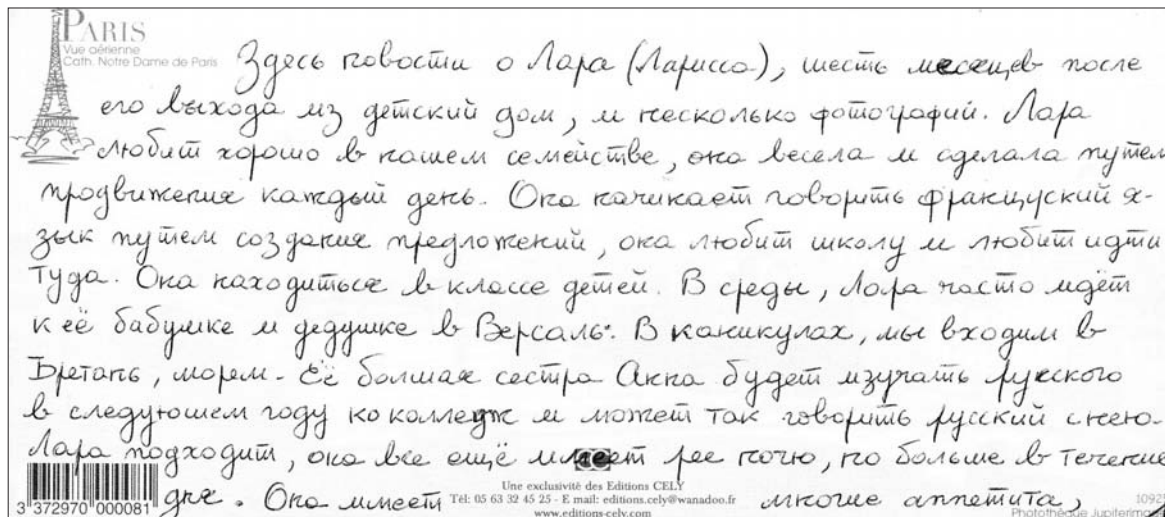 PARIS
Vue aérienne
Cath. Notre Dame de Paris
Здесь новости о Лара (Ларисса), шесть месецев после
его выхода из детский дом, и несколько фотографий. Лара
любит хорошо в нашем семействе, она весела и сделала путем
продвижения каждый день. Она начинает говорить французский я-
зык путем создание предложений, она любит школу и любит идти
туда. Она находиться в классе детей. В среды, Лара часто идёт
к её бабушке и дедушке в Версаль. В каникулах, мы входим в
Бретань, морем. Её болшая сестра Анна будет изучать русского
в следуюшем году ко колледж и может так говорить русский с нею.
Лара подходит, она все ещё имеет рее ночю, но больше в течение
дня. Она имеет многие аппетита,
Une exclusivité des Editions CELY
Tél: 05 63 32 45 25 - E mail: editions.cely@wanadoo.fr
www.editions-cely.com
3 372970 000081
1092
Photothèque Jupiterimage